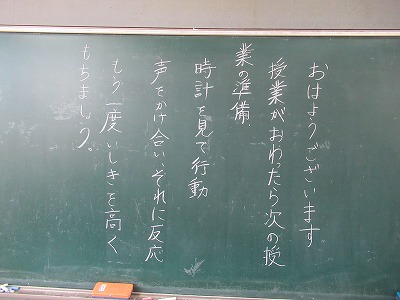 おはようございます。
授業がおわったら次の授
業の準備.
時計を見て行動
声をかけ合い、それに反応
もう一度いしきを高く
もちましょう。